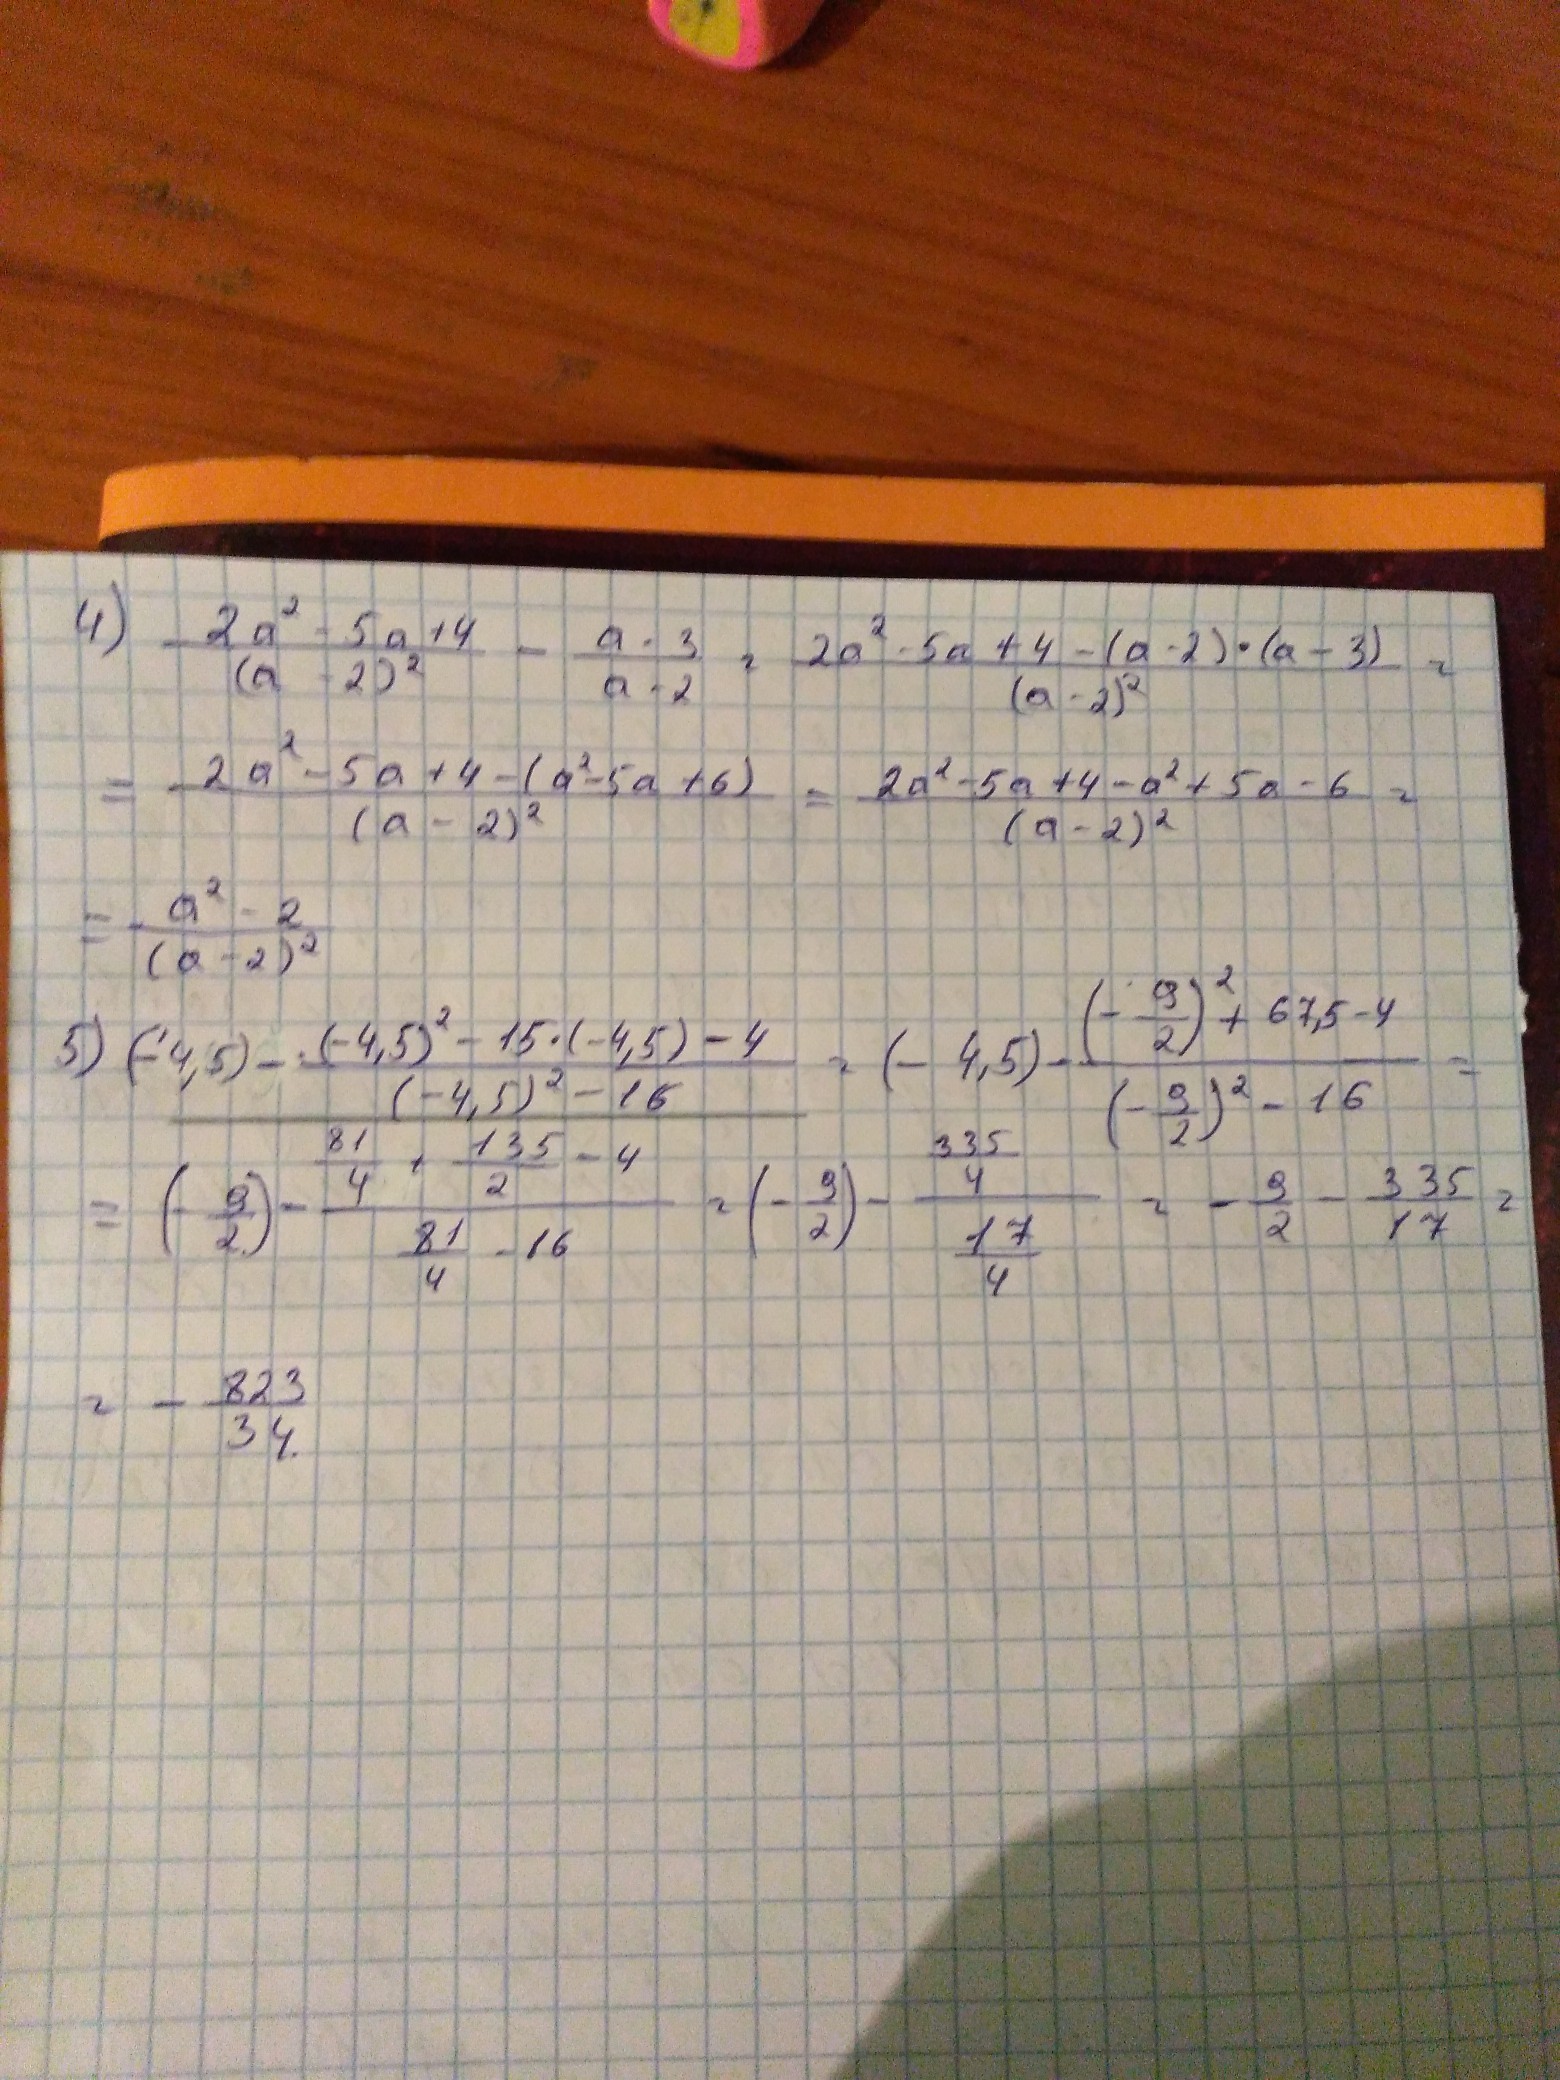 4) (2a² - 5a + 4)/((a - 2)²) - (a - 3)/(a - 2) = (2a² - 5a + 4 - (a - 2)·(a - 3))/((a - 2)²) =
= (2a² - 5a + 4 - (a² - 5a + 6))/((a - 2)²) = (2a² - 5a + 4 - a² + 5a - 6)/((a - 2)²) =
= (a² - 2)/((a - 2)²)
5) (-4,5) - ((-4,5)² - 15·(-4,5) - 4)/((-4,5)² - 16) = (-4,5) - ((-9/2)² + 67,5 - 4)/((-9/2)² - 16) =
= (-9/2) - (81/4 + 135/2 - 4)/(81/4 - 16) = (-9/2) - (335/4)/(17/4) = -9/2 - 335/17 =
= -823/34.